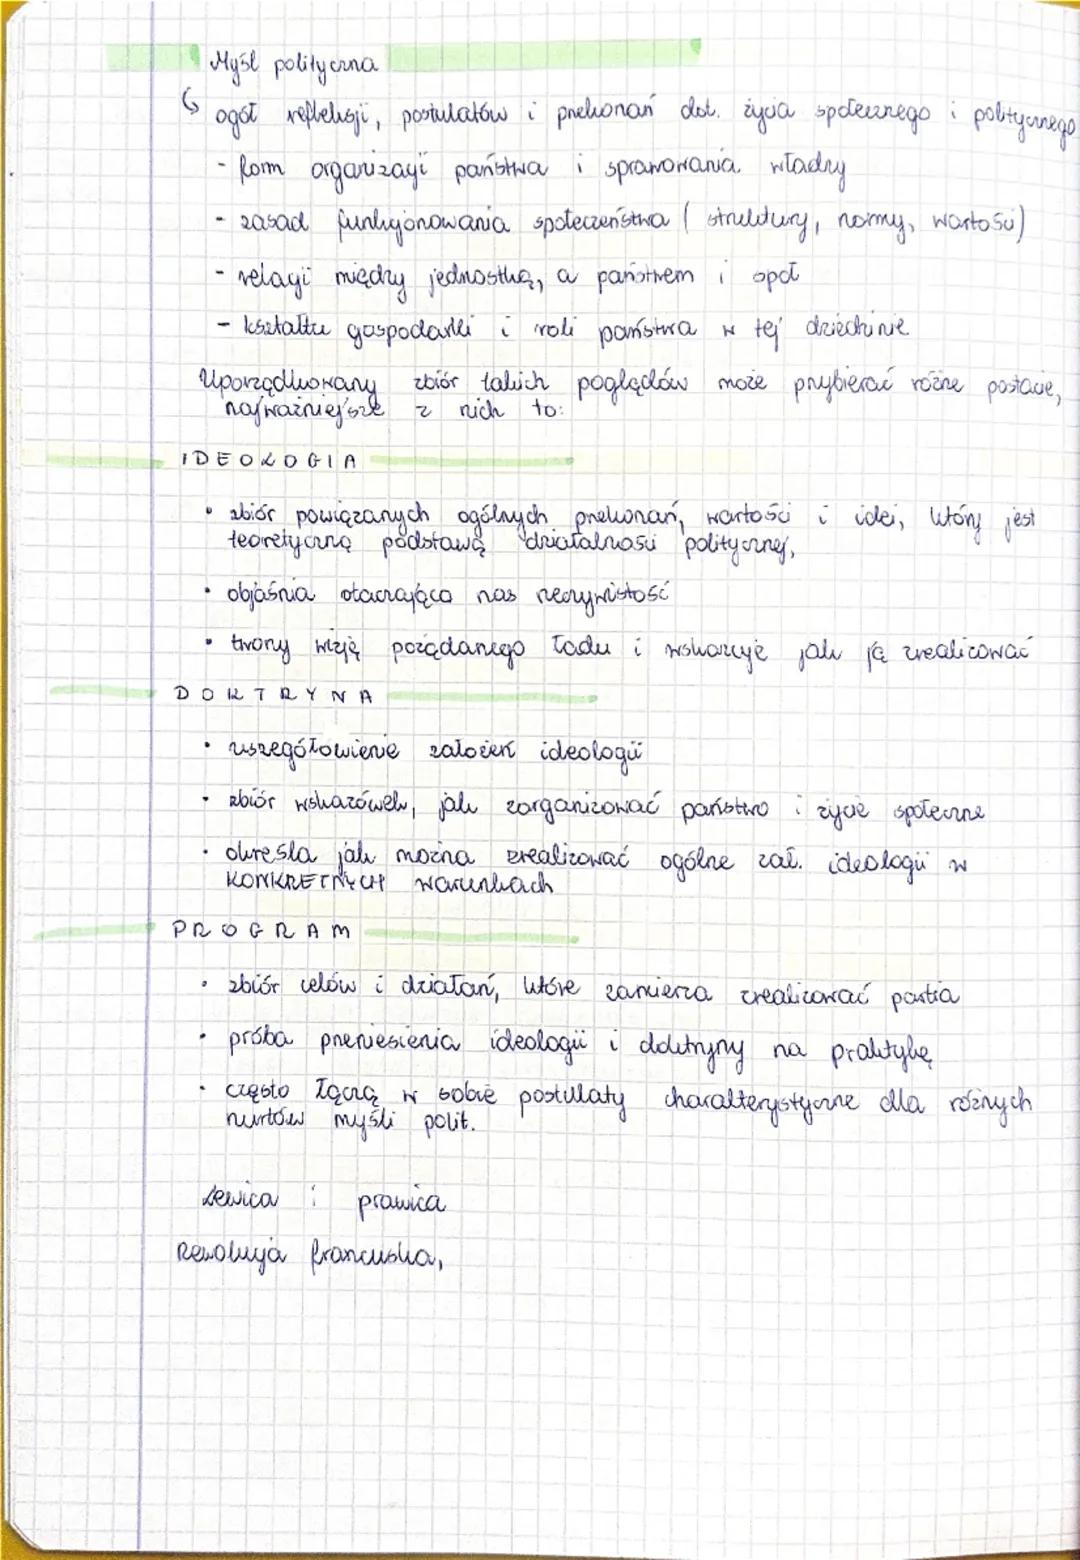 Myśl polityczna
↳ ogół refleksji, postulatów i przekonań dot. życia społecznego i politycznego
- form organizacji państwa i sprawowania władzy
- zasad funkcjonowania społeczeństwa (struktury, normy, wartości)
- relacji między jednostką, a państwem i społ
- kształtu gospodarki i roli państwa w tej dziedzinie
Uporządkowany zbiór takich poglądów może przybierać różne postacie,
najważniejsze z nich to:
IDEOLOGIA
• zbiór powiązanych ogólnych przekonań, wartości i idei, który jest
teoretyczną podstawą działalności politycznej,
• objaśnia otaczającą nas rzeczywistość
• tworzy wizję pożądanego ładu i wskazuje jak ją zrealizować
DOKTRYNA
• uszczegółowienie założeń ideologii
• zbiór wskazówek, jak zorganizować państwo i życie społeczne
• określa jak można zrealizować ogólne zał. ideologii w
KONKRETNYCH warunkach
PROGRAM
• zbiór celów i działań, które zamierza zrealizować partia
• próba przeniesienia ideologii i doktryny na praktykę
• często łączą w sobie postulaty charakterystyczne dla różnych
nurtów myśli polit.
Lewica i prawica
Rewolucja francuska,